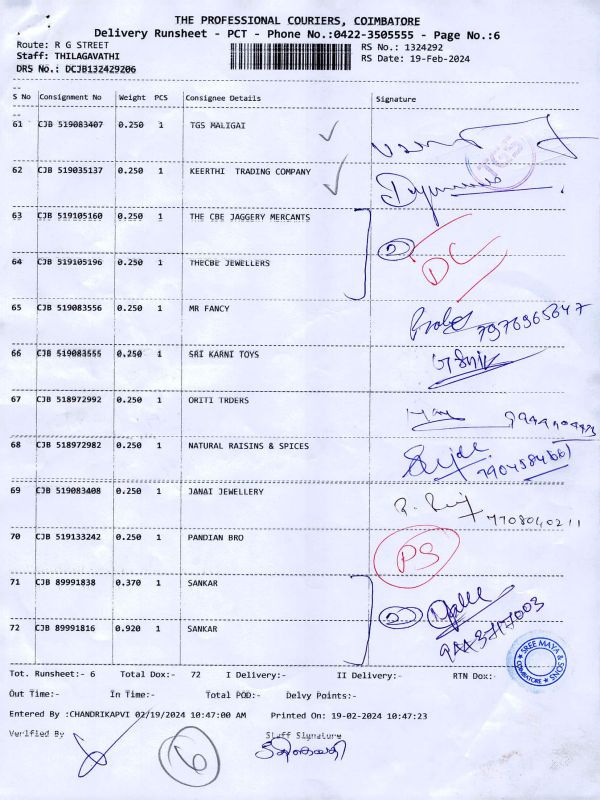 THE PROFESSIONAL COURIERS, COIMBATORE
Delivery Runsheet - PCT - Phone No.:0422-3505555 - Page No.:6
Route: R G STREET
RS No.: 1324292
Staff: THILAGAVATHI
RS Date: 19-Feb-2024
DRS No.: DCJB132429206
S No Consignment No Weight PCS Consignee Details Signature
61 CJB 519083407 0.250 1 TGS MALIGAI
TGS
62 CJB 519035137 0.250 1 KEERTHI TRADING COMPANY
63 CJB 519105160 0.250 1 THE CBE JAGGERY MERCANTS
2 DC
64 CJB 519105196 0.250 1 THECBE JEWELLERS
65 CJB 519083556 0.250 1 MR FANCY
7976965647
66 CJB 519083555 0.250 1 SRI KARNI TOYS
67 CJB 518972992 0.250 1 ORITI TRDERS
68 CJB 518972982 0.250 1 NATURAL RAISINS & SPICES
69 CJB 519083408 0.250 1 JANAI JEWELLERY
7708040211
70 CJB 519133242 0.250 1 PANDIAN BRO
PS
71 CJB 89991838 0.370 1 SANKAR
2
72 CJB 89991816 0.920 1 SANKAR
SREE MAYA & SONS
COIMBATORE
Tot. Runsheet:- 6 Total Dox:- 72 I Delivery:- II Delivery:- RTN Dox:-
Out Time:- In Time:- Total POD:- Delvy Points:-
Entered By :CHANDRIKAPVI 02/19/2024 10:47:00 AM Printed On: 19-02-2024 10:47:23
Verified By Staff Signature
6